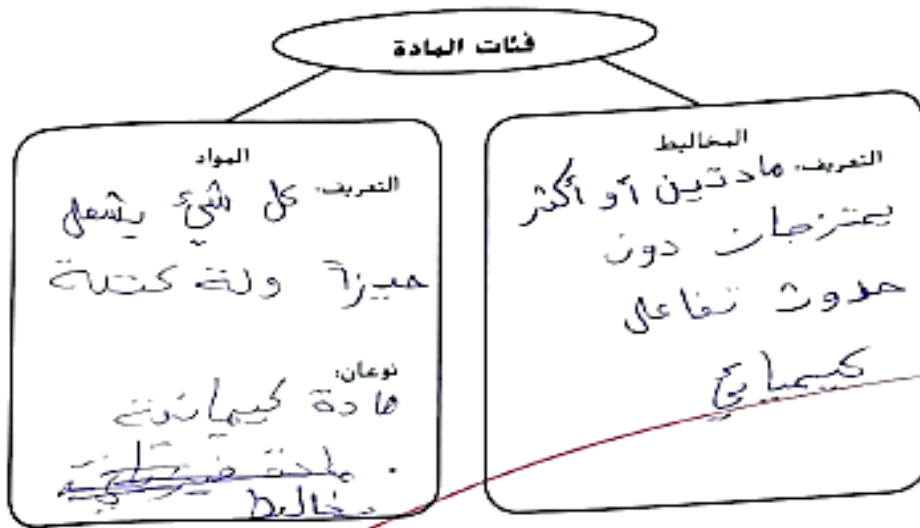 فئات المادة
المخاليط
التعريف: مادتين أو أكثر
يمتزجان دون
حدوث تفاعل
كيميائي
المواد
التعريف: كل شيئ يشغل
حيزاً ولة كتلة
نوعان:
مادة كيميائية
مادة فيزيائية
مخاليط